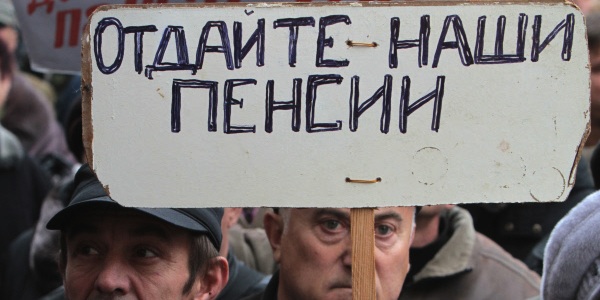 ОТДАЙТЕ НАШИ
ПЕНСИИ